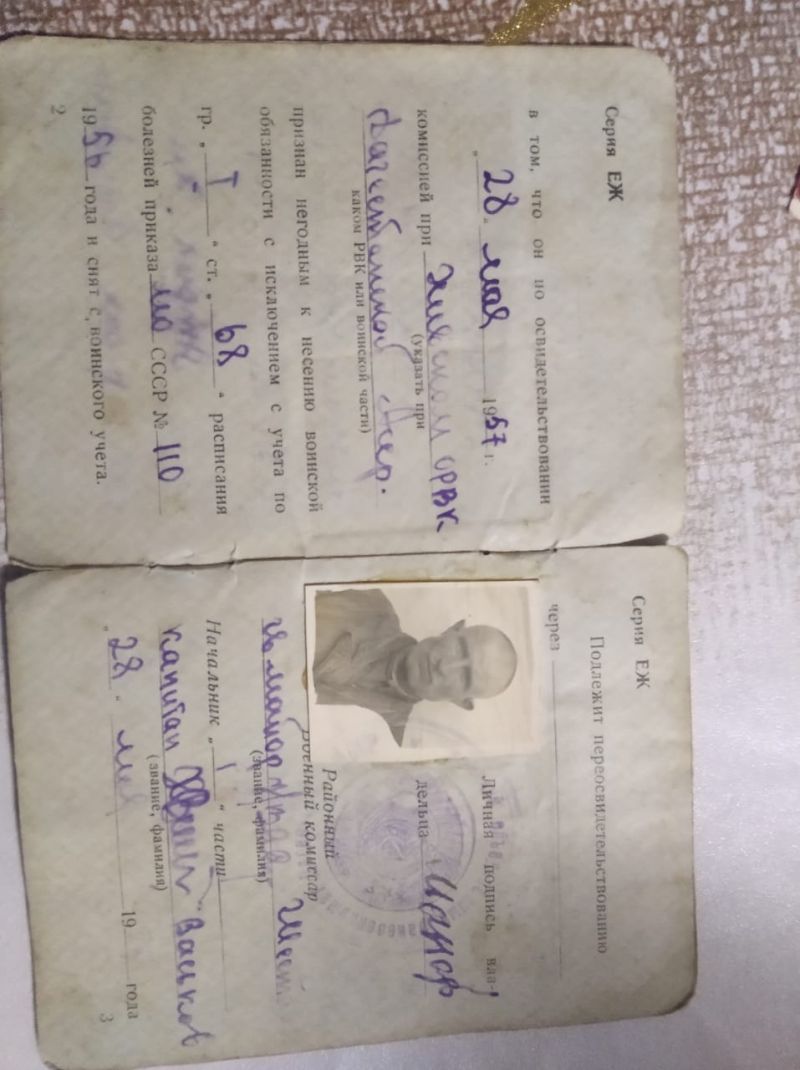 Серия ЕЖ
в том, что он по освидетельствовании
„28“ мая 1957 г.
комиссией при ОРВК
(указать при
каком РВК или воинской части)
признан негодным к несению воинской
обязанности с исключением с учета по
гр. „I“ ст. „68“ расписания
болезней приказа МО СССР № 110
1956 года и снят с воинского учета.
2
Серия ЕЖ
Подлежит переосвидетельствованию
через
Личная подпись вла-
дельца
Районный
военный комиссар
майор
(звание, фамилия)
Начальник „1“ части
капитан Васьков
(звание, фамилия)
„28“ мая 19 года
3